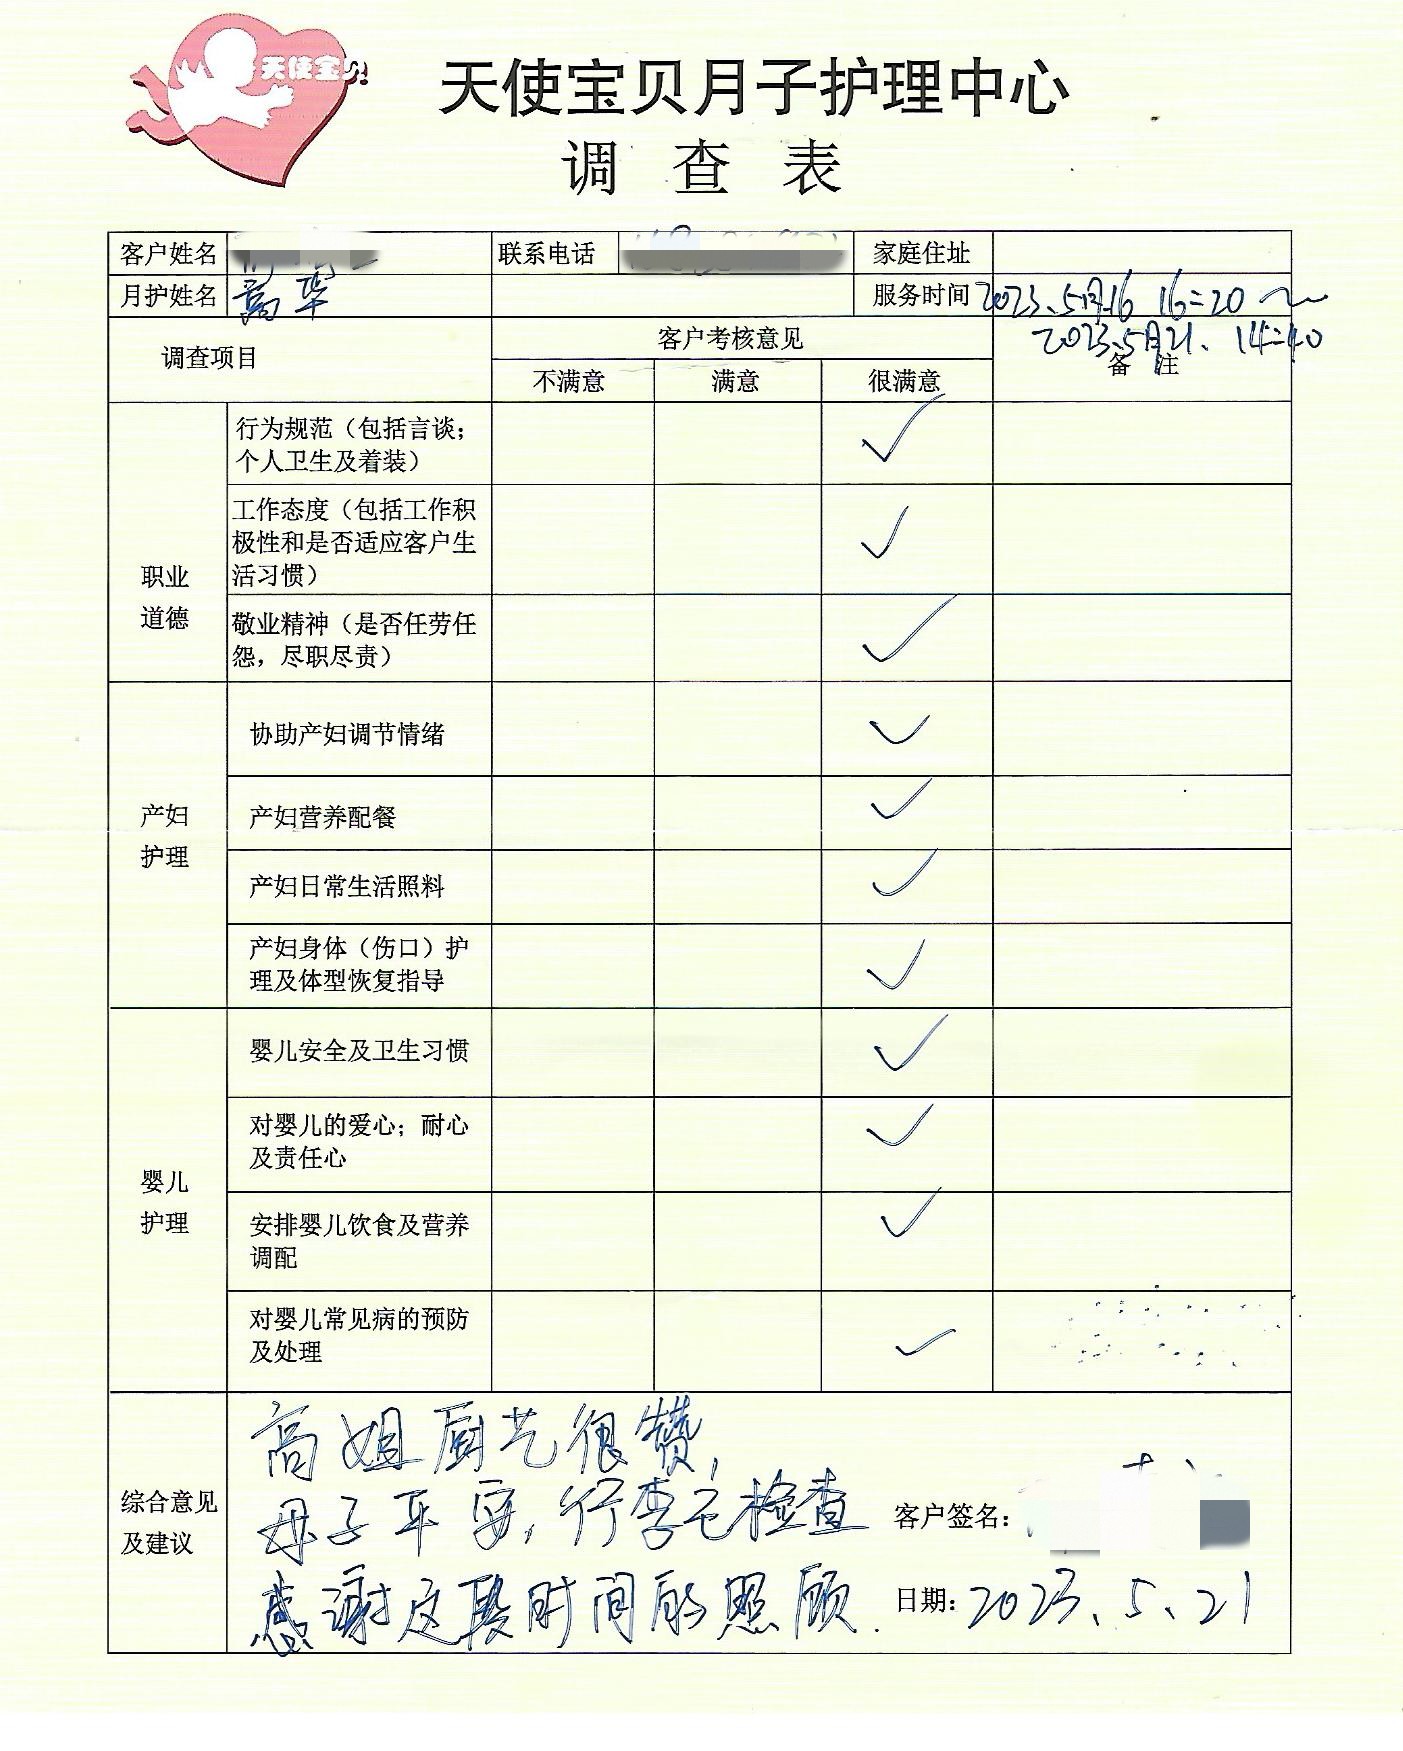 天使宝贝
天使宝贝月子护理中心
调 查 表
客户姓名 联系电话 家庭住址
月护姓名 高华 服务时间 2023.5月16 16:20 ~
2023.5月21. 14:40
调查项目 客户考核意见 备 注
不满意 满意 很满意
职业
道德
行为规范（包括言谈；
个人卫生及着装）
工作态度（包括工作积
极性和是否适应客户生
活习惯）
敬业精神（是否任劳任
怨，尽职尽责）
产妇
护理
协助产妇调节情绪
产妇营养配餐
产妇日常生活照料
产妇身体（伤口）护
理及体型恢复指导
婴儿
护理
婴儿安全及卫生习惯
对婴儿的爱心；耐心
及责任心
安排婴儿饮食及营养
调配
对婴儿常见病的预防
及处理
综合意见
及建议
高姐厨艺很赞，
母子平安，行李已检查
感谢这段时间的照顾.
客户签名：
日期：2023、5、21